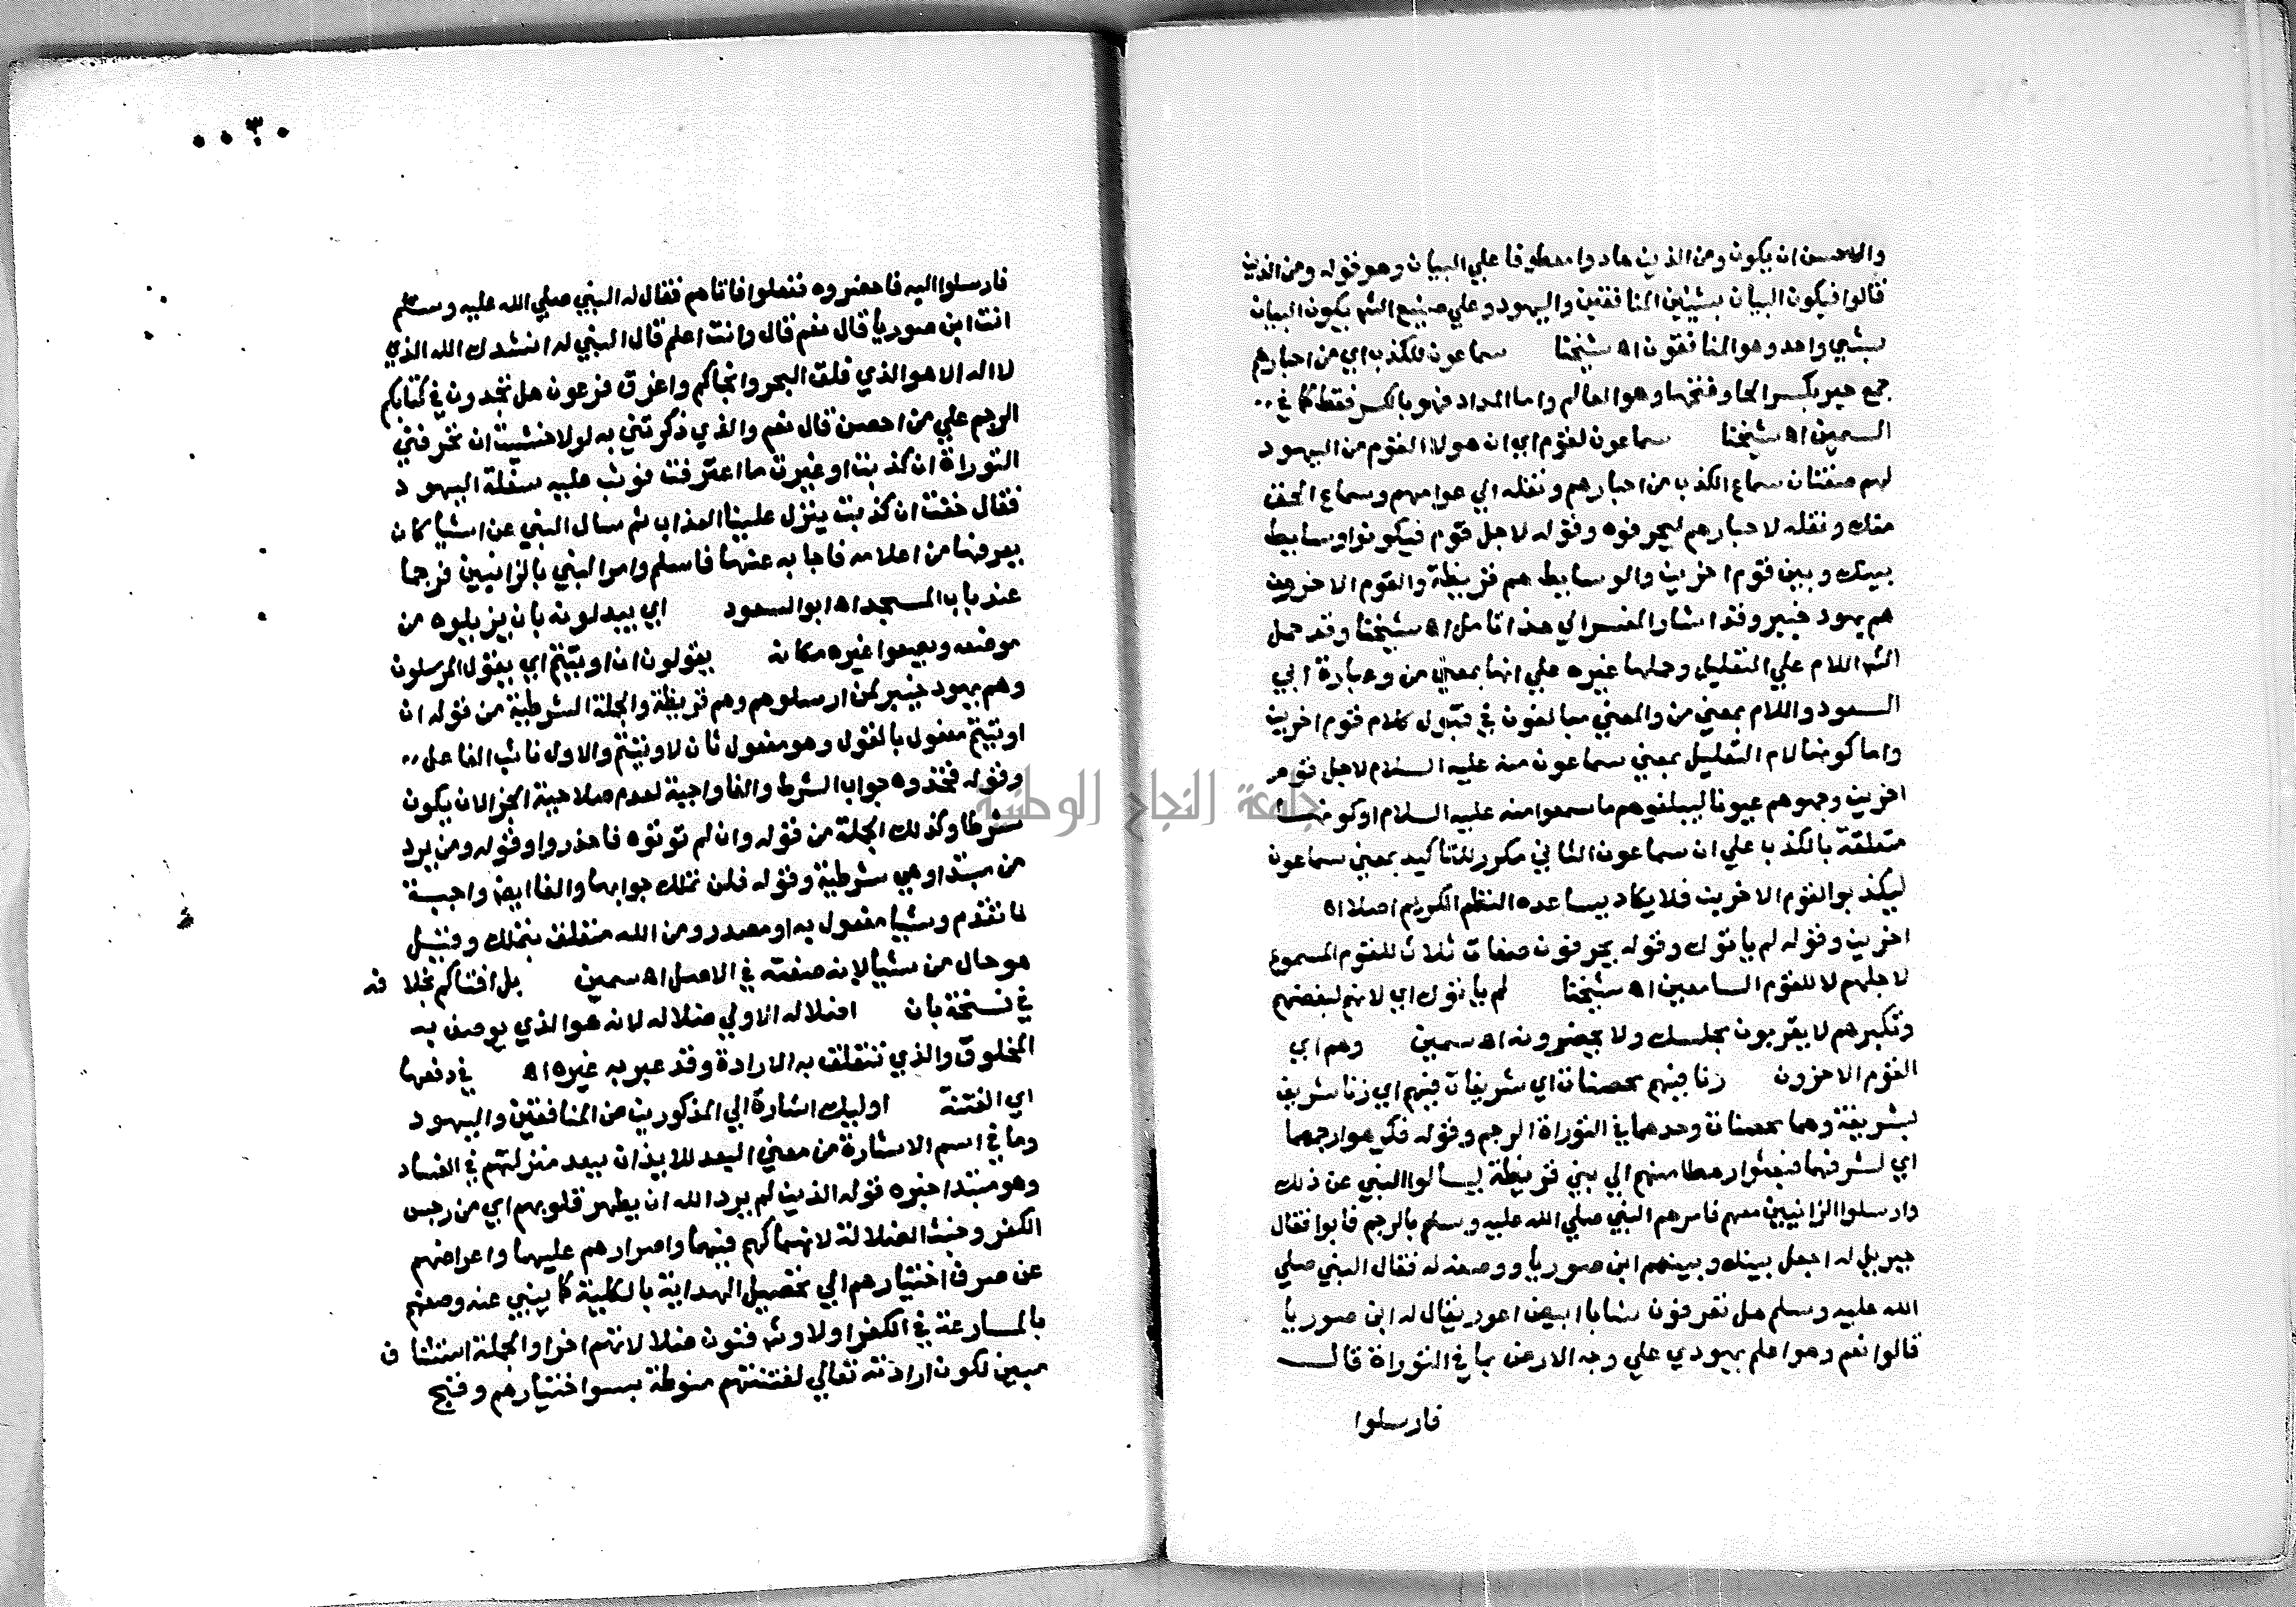 والاحسن ان يكون ومن الذين هادوا معطوفا علي البيان وهو قوله ومن الذين
قالوا فيكون البيان بشيئين المنافقين واليهود وعلي صنيع الشم يكون البيان
بشيء واحد وهو المنافقون اه شيخنا سماعون للكذب اي من احبارهم
جمع حبر بكسر الحا وفتحها وهو العالم واما المداد فهو بالكسر فقط كما في
السمين اه شيخنا سماعون لقوم اي ان هولا القوم من اليهود
لهم صفتان سماع الكذب من احبارهم ونقله الي عوامهم وسماع الحق
منك ونقله لاحبارهم ليحرفوه وقوله لاجل قوم فيكونوا وسايط
بينك وبين قوم اخرين والوسايط هم قريظة والقوم الاخرين
هم يهود خيبر وقد اشار المفسر الي هذا تامل اه شيخنا وقد حمل
الشم اللام علي التعليل وحملها غيره علي انها بمعني من وعبارة ابي
السعود واللام بمعني من والمعني مبالغون في قبول كلام قوم اخرين
واما كونها لام التعليل بمعني سماعون منه عليه السلام لاجل قوم
اخرين وجهوهم عيونا ليبلغوهم ما سمعوا منه عليه السلام او كونها
متعلقة بالكذب علي ان سماعون الثاني مكرر للتاكيد بمعني سماعون
ليكذبوا لقوم الاخرين فلا يكاد يساعده النظم الكريم اصلا اه
اخرين وقوله لم ياتوك وقوله يحرفون صفات ثلاث للقوم المسموع
لاجلهم لا للقوم السامعين اه شيخنا لم ياتوك اي لانهم لبغضهم
وتكبرهم لا يقربون مجلسك ولا يحضرونه اه سمين وهم اي
القوم الاخرون زنا فيهم محصنان اي شريفان فيهم اي زنا شريف
بشريفة وهما محصنان وحدهما في التوراة الرجم وقوله فكرهوا رجمهما
اي لشرفهما فبعثوا رهطا منهم الي بني قريظة ليسالوا النبي عن ذلك
وارسلوا الزانيين معهم فامرهم النبي صلي الله عليه وسلم بالرجم فابوا فقال
جبريل له اجعل بينك وبينهم ابن صوريا ووصفه له فقال النبي صلي
الله عليه وسلم هل تعرفون شابا ابيض اعور يقال له ابن صوريا
قالوا نعم وهو اعلم يهودي علي وجه الارض بما في التوراة قال
فارسلوا
٠٠٣٠
فارسلوا اليه فاحضروه ففعلوا فاتاهم فقال له النبي صلي الله عليه وسلم
انت ابن صوريا قال نعم قال وانت اعلم قال النبي له انشدك الله الذي
لا اله الا هو الذي فلق البحر وانجاكم واغرق فرعون هل تجدون في كتابكم
الرجم علي من احصن قال نعم والذي ذكرتني به لولا خشيت ان تحرقني
التوراة ان كذبت او غيرت ما اعترفت فوثب عليه سفلة اليهود
فقال خفت ان كذبت ينزل علينا العذاب ثم سال النبي عن اشيا كان
يعرفها من اعلامه فاجابه عنها فاسلم وامر النبي بالزانيين فرجما
عند باب المسجد اه ابو السعود اي يبدلونه بان يزيلوه من
موضعه ويضعوا غيره مكانه يقولون ان اوتيتم اي يقول المرسلون
وهم يهود خيبر لمن ارسلوهم وهم قريظة والجملة الشرطية من قوله ان
اوتيتم مفعول بالقول وهو مفعول ثان لاوتيتم والاول نائب الفاعل
وقوله فخذوه جواب الشرط والفا واجبة لعدم صلاحية الجزا لان يكون
شرطا وكذلك الجملة من قوله وان لم توتوه فاحذروا وقوله ومن يرد
من مبتدا وهي شرطية وقوله فلن تملك جوابها والفا ايضا واجبة
لما تقدم وشيا مفعول به او مصدر ومن الله متعلق بتملك وقيل
هو حال من شيا لانه صفته في الاصل اه سمين بل افتاكم بخلافه
في نسخة بان اضلاله الاولي ضلاله لانه هو الذي يوصف به
المخلوق والذي تتعلق به الارادة وقد عبر به غيره اه في دفعها
اي الفتنة اوليك اشارة الي المذكورين من المنافقين واليهود
وما في اسم الاشارة من معني البعد للايذان ببعد منزلتهم في الفساد
وهو مبتدا خبره قوله الذين لم يرد الله ان يطهر قلوبهم اي من رجس
الكفر وخبث الضلالة لانهماكهم فيهما واصرارهم عليهما واعراضهم
عن صرف اختيارهم الي تحصيل الهداية بالكلية كما ينبي عنه وصفهم
بالمسارعة في الكفر اولا وشم فتون ضلالاتهم اخرا والجملة استئناف
مبين لكون ارادته تعالي لفتنتهم منوطة بسوا اختيارهم وقبح
جامعة النجاح الوطنية